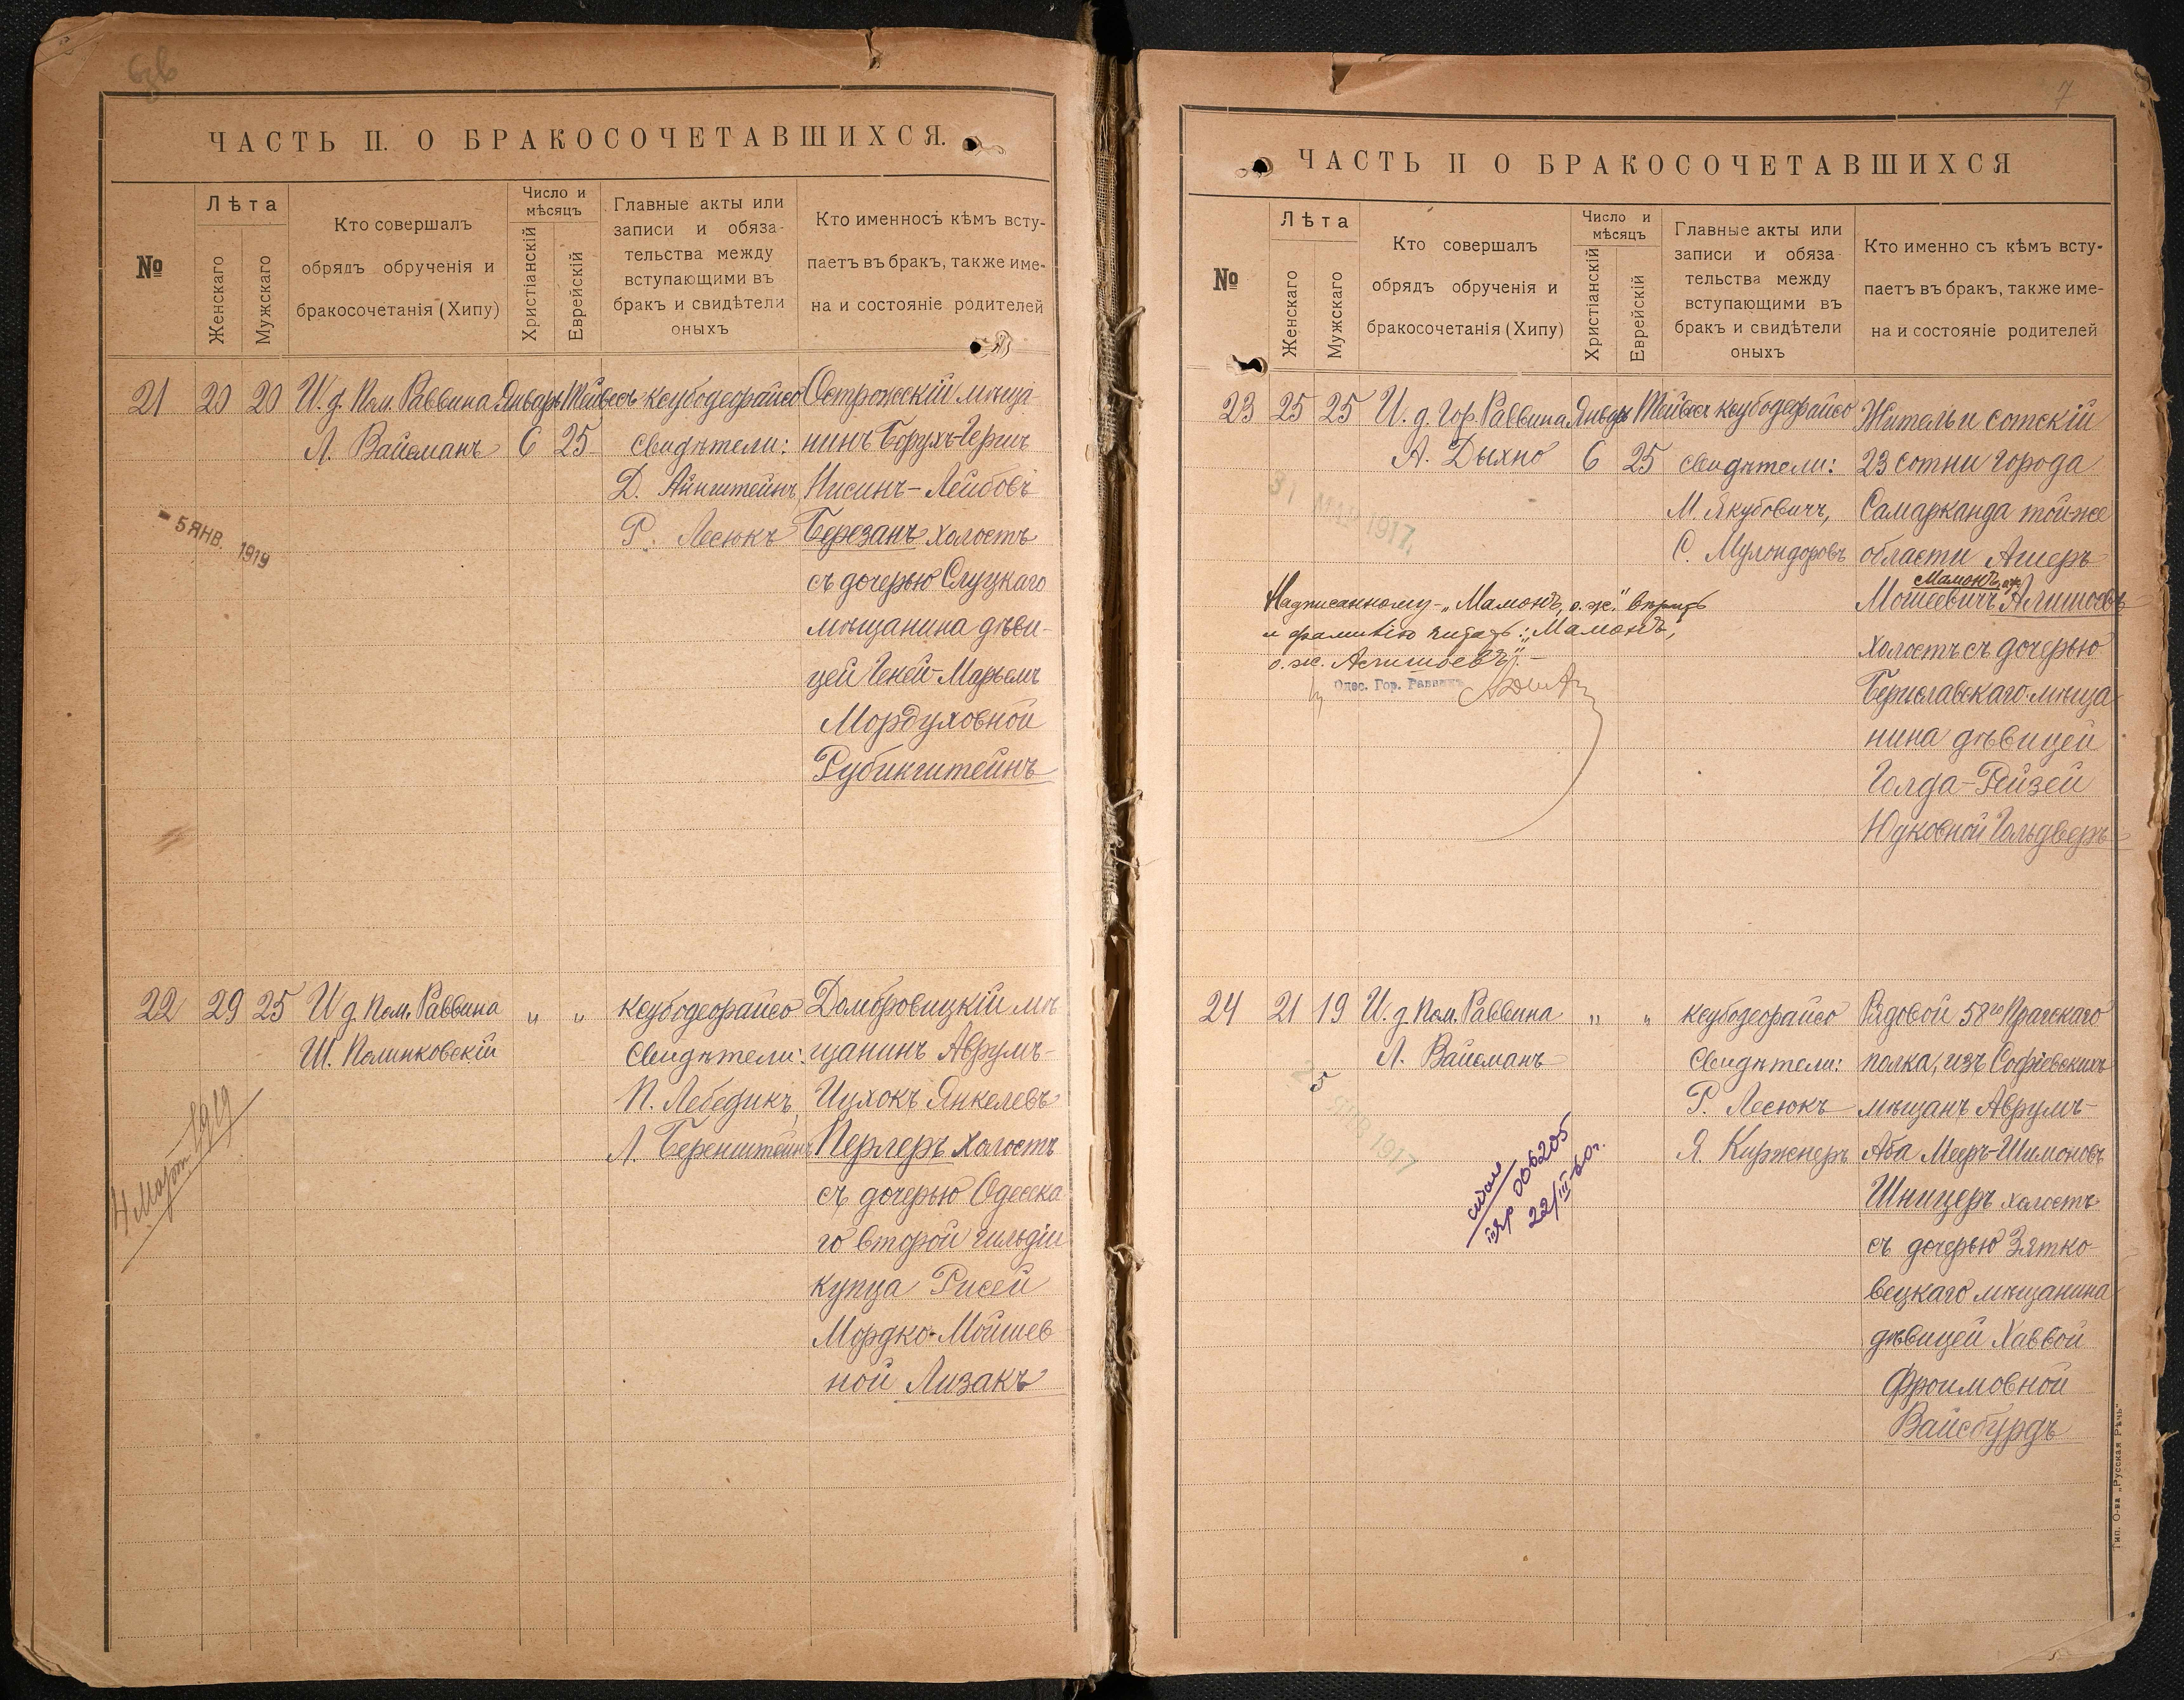 ЧАСТЬ II. О БРАКОСОЧЕТАВШИХСЯ.
№
Лѣта
Женскаго
Мужскаго
Кто совершалъ
обрядъ обрученія и
бракосочетанія (Хипу)
Число и
мѣсяцъ
Христіанскій
Еврейскій
Главные акты или
записи и обяза-
тельства между
вступающими въ
бракъ и свидѣтели
оныхъ
Кто именносъ кѣмъ всту-
паетъ въ бракъ, также име-
на и состояніе родителей
21 20 20
И. д. Пом. Раввина
Л. Вайсманъ
Январь
6
Тейвесъ
25
ксубодеорайсо
свидѣтели:
Д. Айнштейнъ
Р. Лесюкъ
Острожскій мѣща-
нинъ Борухъ-Герш
Нисинъ-Лейбовъ
Березанъ холостъ
съ дочерью Слуцкаго
мѣщанина дѣви-
цей Геней-Марьемъ
Мордуховной
Рубинштейнъ
- 5 ЯНВ. 1919
22 29 25
И д. Пом. Раввина
Ш. Полинковскій
" "
ксубодеорайсо
свидѣтели:
П. Лебедикъ
Л. Беренштейнъ
Домбровицкій мѣ-
щанинъ Аврумъ-
Ицхокъ Янкелевъ
Перлеръ холостъ
съ дочерью Одесска
го второй гильдіи
купца Рисей
Мордко-Мойшев
ной Лизакъ
4 Март 1919
7
ЧАСТЬ II О БРАКОСОЧЕТАВШИХСЯ
№
Лѣта
Женскаго
Мужскаго
Кто совершалъ
обрядъ обрученія и
бракосочетанія (Хипу)
Число и
мѣсяцъ
Христіанскій
Еврейскій
Главные акты или
записи и обяза
тельства между
вступающими въ
бракъ и свидѣтели
оныхъ
Кто именно съ кѣмъ всту-
паетъ въ бракъ, также име-
на и состояніе родителей
23 25 25
И. д. Гор. Раввина
А. Дыхно
Январь
6
Тейвесъ
25
ксубодеорайсо
свидѣтели:
М. Якубовичъ,
С. Мулондоровъ
Житель и сотскій
23 сотни города
Самарканда тойже
области Ашеръ-
Мамонъ, о.ж.
Мошеевичъ Алишоевъ
холостъ съ дочерью
Бериславскаго мѣща
нина дѣвицей
Голда-Рейзей
Юдковной Гольдверъ
1917
Надписанному - "Мамонъ, о.ж." вѣрить
и фамилію читать: "Мамонъ,
о.ж. Алишоевъ". -
Одес. Гор. Раввинъ
24 21 19
И. д. Пом. Раввина
Л. Вайсманъ
" "
ксубодеорайсо
свидѣтели:
Р. Лесюкъ
Я. Киржнеръ
Рядовой 58го Прагскаго
полка, изъ Софіевскихъ
мѣщанъ Аврумъ-
Аба Меръ-Шимоновъ
Шницеръ холостъ
съ дочерью Зятко-
вецкаго мѣщанина
дѣвицей Хаввой
Фроимовной
Вайсбурдъ
ЯНВ 1917
006205
22/III-60г.
Тип. О-ва „Русская Рѣчь"